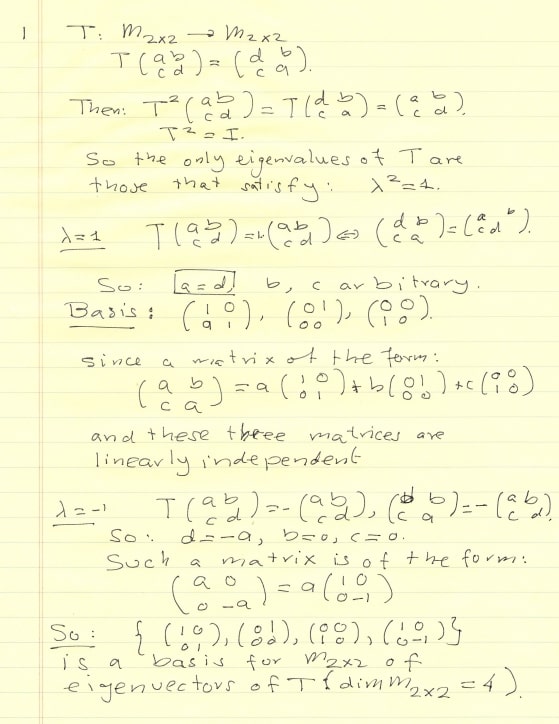 1 T: M₂ₓ₂ → M₂ₓ₂
T(a b; c d) = (d b; c a).
Then: T²(a b; c d) = T(d b; c a) = (a b; c d).
T² = I.
So the only eigenvalues of T are
those that satisfy: λ² = 1.
λ=1 T(a b; c d) = 1·(a b; c d) ⇔ (d b; c a) = (a b; c d).
So: a = d, b, c arbitrary.
Basis: (1 0; 0 1), (0 1; 0 0), (0 0; 1 0).
since a matrix of the form:
(a b; c a) = a(1 0; 0 1) + b(0 1; 0 0) + c(0 0; 1 0)
and these three matrices are
linearly independent
λ=-1 T(a b; c d) = -(a b; c d), (d b; c a) = -(a b; c d)
So: d=-a, b=0, c=0.
Such a matrix is of the form:
(a 0; 0 -a) = a(1 0; 0 -1)
So: {(1 0; 0 1), (0 1; 0 0), (0 0; 1 0), (1 0; 0 -1)}
is a basis for M₂ₓ₂ of
eigenvectors of T (dim M₂ₓ₂ = 4).